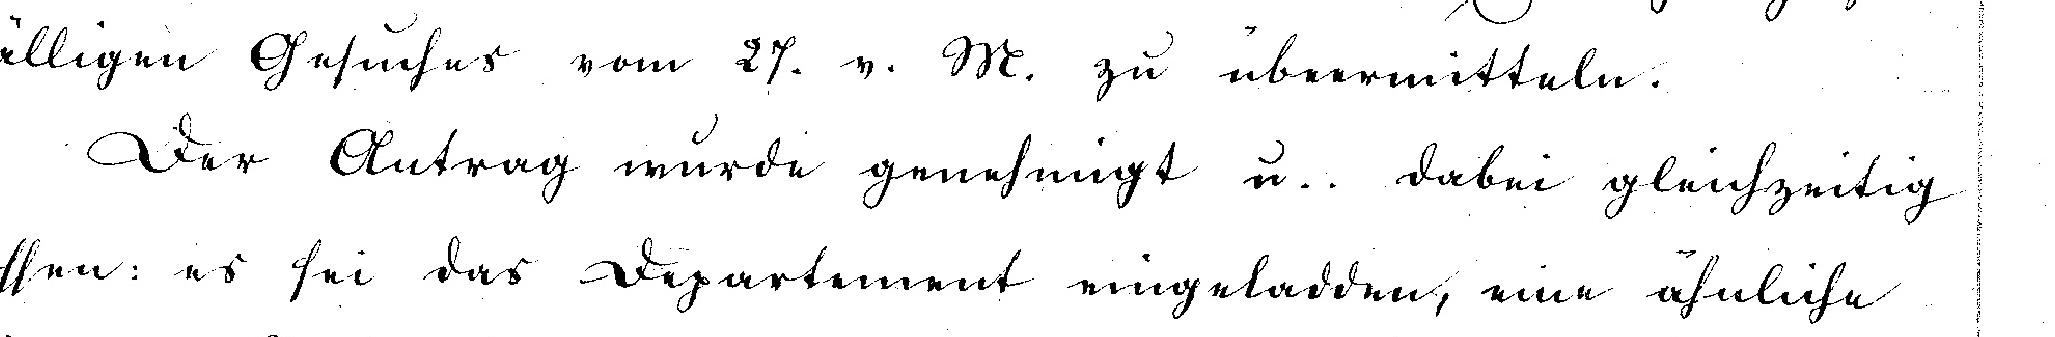 älligen Gesuches vom 27. v. M. zu übeermitteln.
Der Antrag wurde genehmigt u.. dabei gleichzeitig
ssen: es sei das Departement eingeladden, eine ähnliche